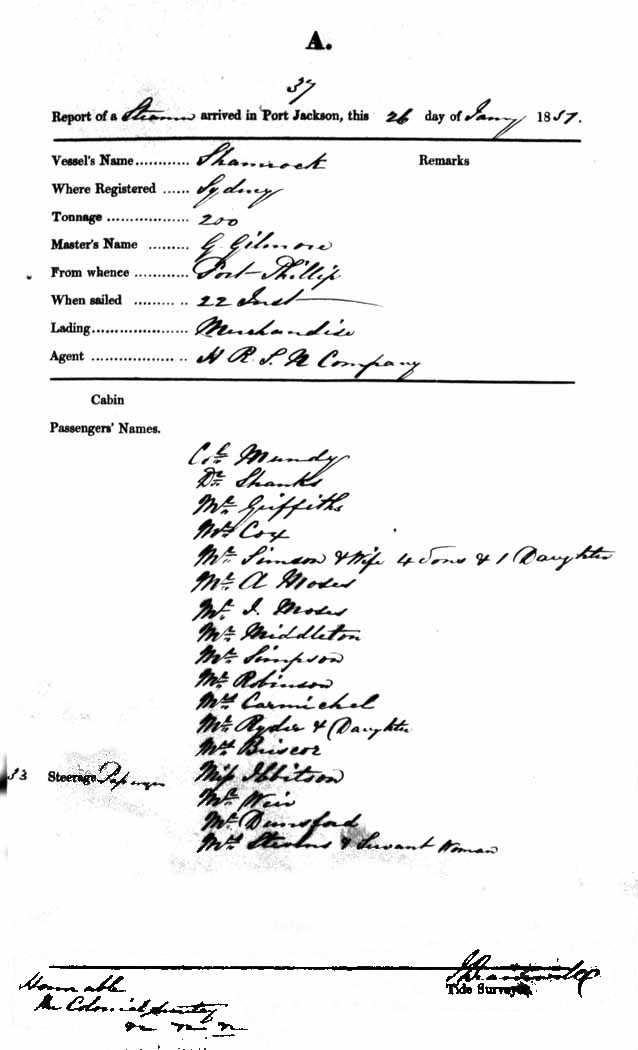 A.
37
Report of a Steamer arrived in Port Jackson, this 26 day of Jany 1857.
Vessel's Name............ Shamrock Remarks
Where Registered ...... Sydney
Tonnage .................. 200
Master's Name ......... G Gilmore
From whence ............ Port Phillip
When sailed ......... .. 22 Inst
Lading..................... Merchandise
Agent .................. .. H R S N Company
Cabin
Passengers' Names.
Col Mundy
Dr Shanks
Mr Griffiths
Mrs Cox
Mr Simson & Wife 4 Sons & 1 Daughter
Mr A Moses
Mr I. Moses
Mr Middleton
Mr Simpson
Mr Robinson
Mrs Carmichel
Mr Ryder & Daughter
Mrs Briscoe
33 Steerage Passengers Miss Ibbitson
Mr Weir
Mr Dunsford
Mrs Stevens & Servant Woman
Tide Surveyor
Honorable
The Colonial Secretary